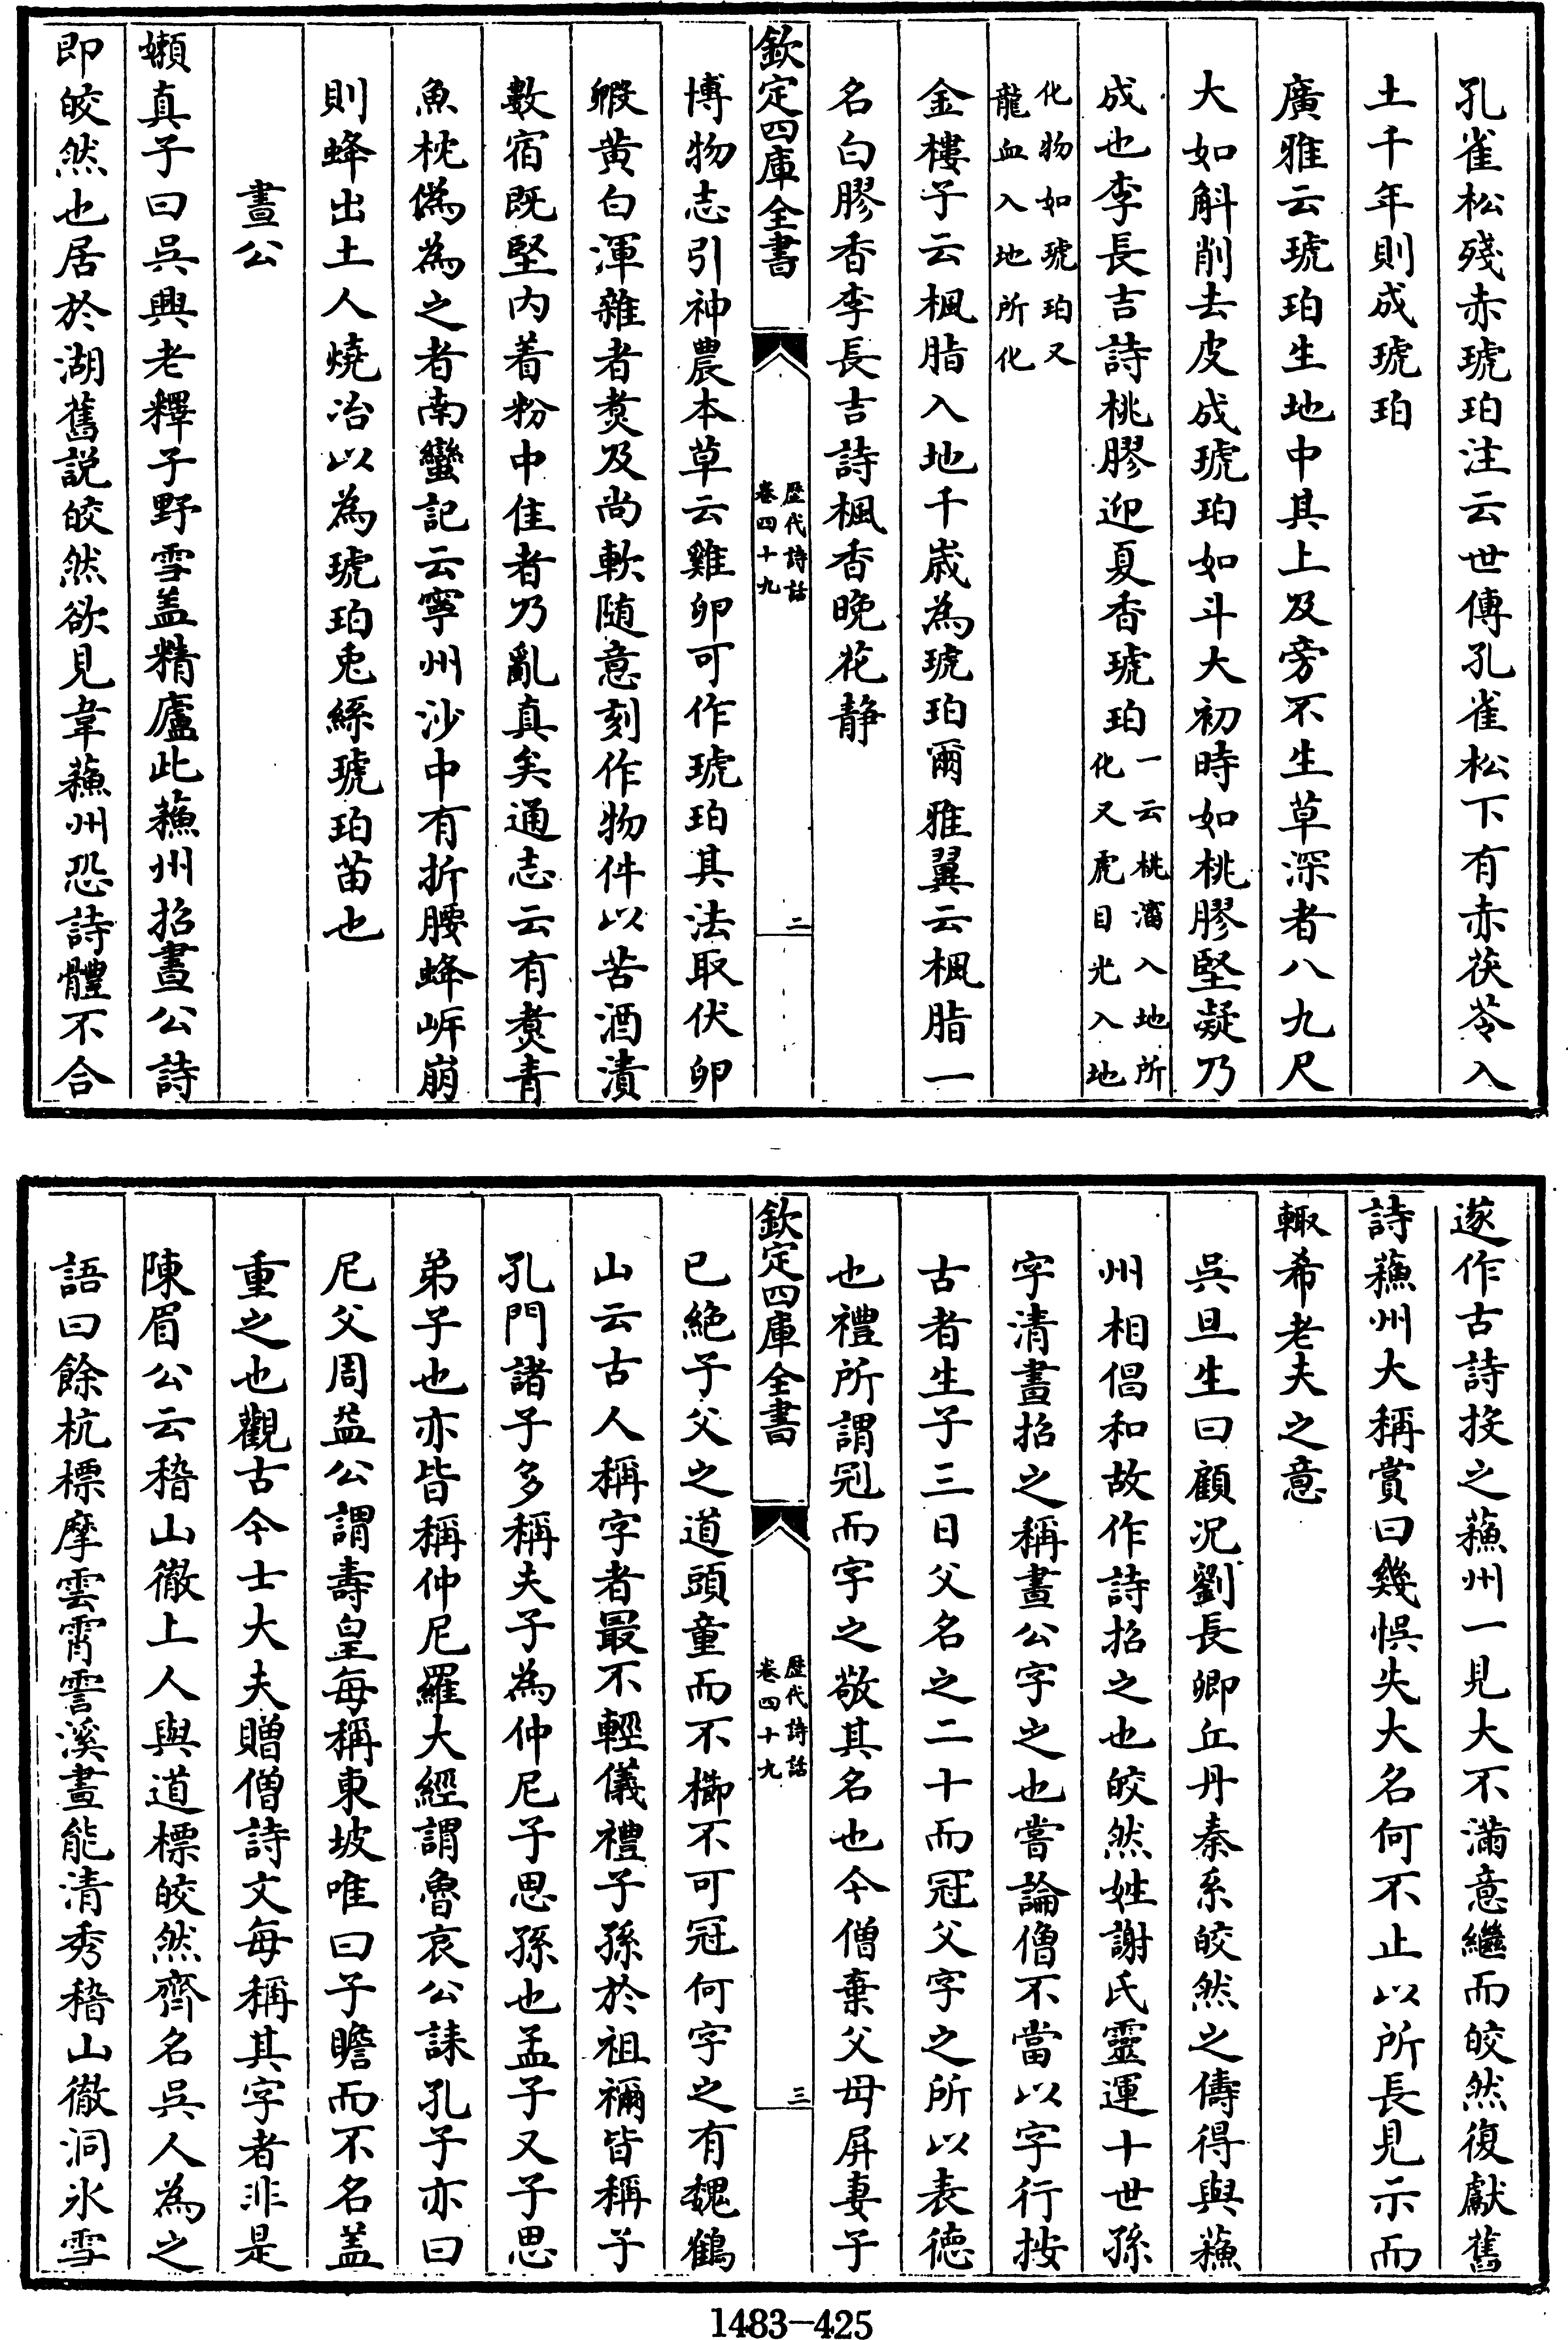 孔雀松殘赤琥珀注云世傳孔雀松下有赤茯苓入
土千年則成琥珀
廣雅云琥珀生地中其上及旁不生草深者八九尺
大如斛削去皮成琥珀如斗大初時如桃膠堅凝乃
成也李長吉詩桃膠迎夏香琥珀一云桃瀋入地所
化又虎目光入地
化物如琥珀又
龍血入地所化
金樓子云楓脂入地千歲為琥珀爾雅翼云楓脂一
名白膠香李長吉詩楓香晚花静
欽定四庫全書
歴代詩話
卷四十九
二
博物志引神農本草云雞卵可作琥珀其法取伏卵
毈黄白渾雜者煑及尚軟随意刻作物件以苦酒漬
數宿既堅内着粉中佳者乃亂真矣通志云有煑青
魚枕偽為之者南蠻記云寧州沙中有折腰蜂岍崩
則蜂出土人燒冶以為琥珀兎絲琥珀苗也
晝公
嬾真子曰吳興老釋子野雪盖精廬此蘓州招晝公詩
即皎然也居於湖舊説皎然欲見韋蘓州恐詩體不合
遂作古詩投之蘓州一見大不滿意繼而皎然復獻舊
詩蘓州大稱賞曰幾悞失大名何不止以所長見示而
輙希老夫之意
吳旦生曰顧况劉長卿丘丹秦系皎然之儔得與蘓
州相倡和故作詩招之也皎然姓謝氏靈運十世孫
字清晝招之稱晝公字之也嘗論僧不當以字行按
古者生子三日父名之二十而冠父字之所以表德
也禮所謂冠而字之敬其名也今僧棄父母屏妻子
欽定四庫全書
歴代詩話
卷四十九
三
已絶子父之道頭童而不櫛不可冠何字之有魏鶴
山云古人稱字者最不輕儀禮子孫於祖禰皆稱子
孔門諸子多稱夫子為仲尼子思孫也孟子又子思
弟子也亦皆稱仲尼羅大經謂魯哀公誄孔子亦曰
尼父周益公謂壽皇每稱東坡唯曰子瞻而不名盖
重之也觀古今士大夫贈僧詩文每稱其字者非是
陳眉公云稽山徹上人與道標皎然齊名吳人為之
語曰餘杭標摩雲霄霅溪晝能清秀稽山徹洞氷雪
1483-425